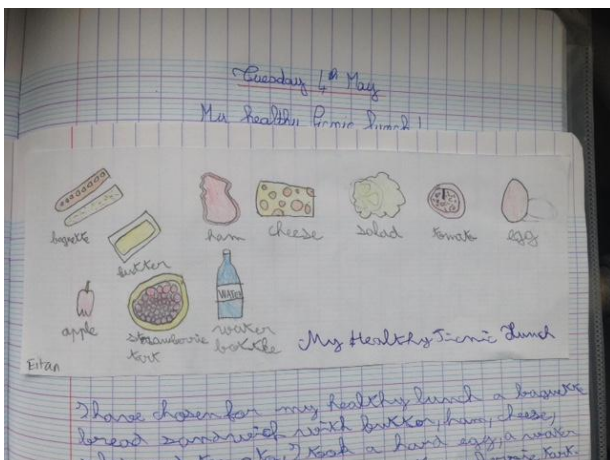 Tuesday 4th May
My healthy Picnic lunch!
baguette
butter
ham
cheese
salad
tomato
egg
apple
strawberrie
tart
WATER
water
bottle
My Healthy Picnic Lunch
Eitan
I have chosen for my healthy lunch a baguette
bread sandwich with butter, ham, cheese,
I took a hard egg, a water
tart.